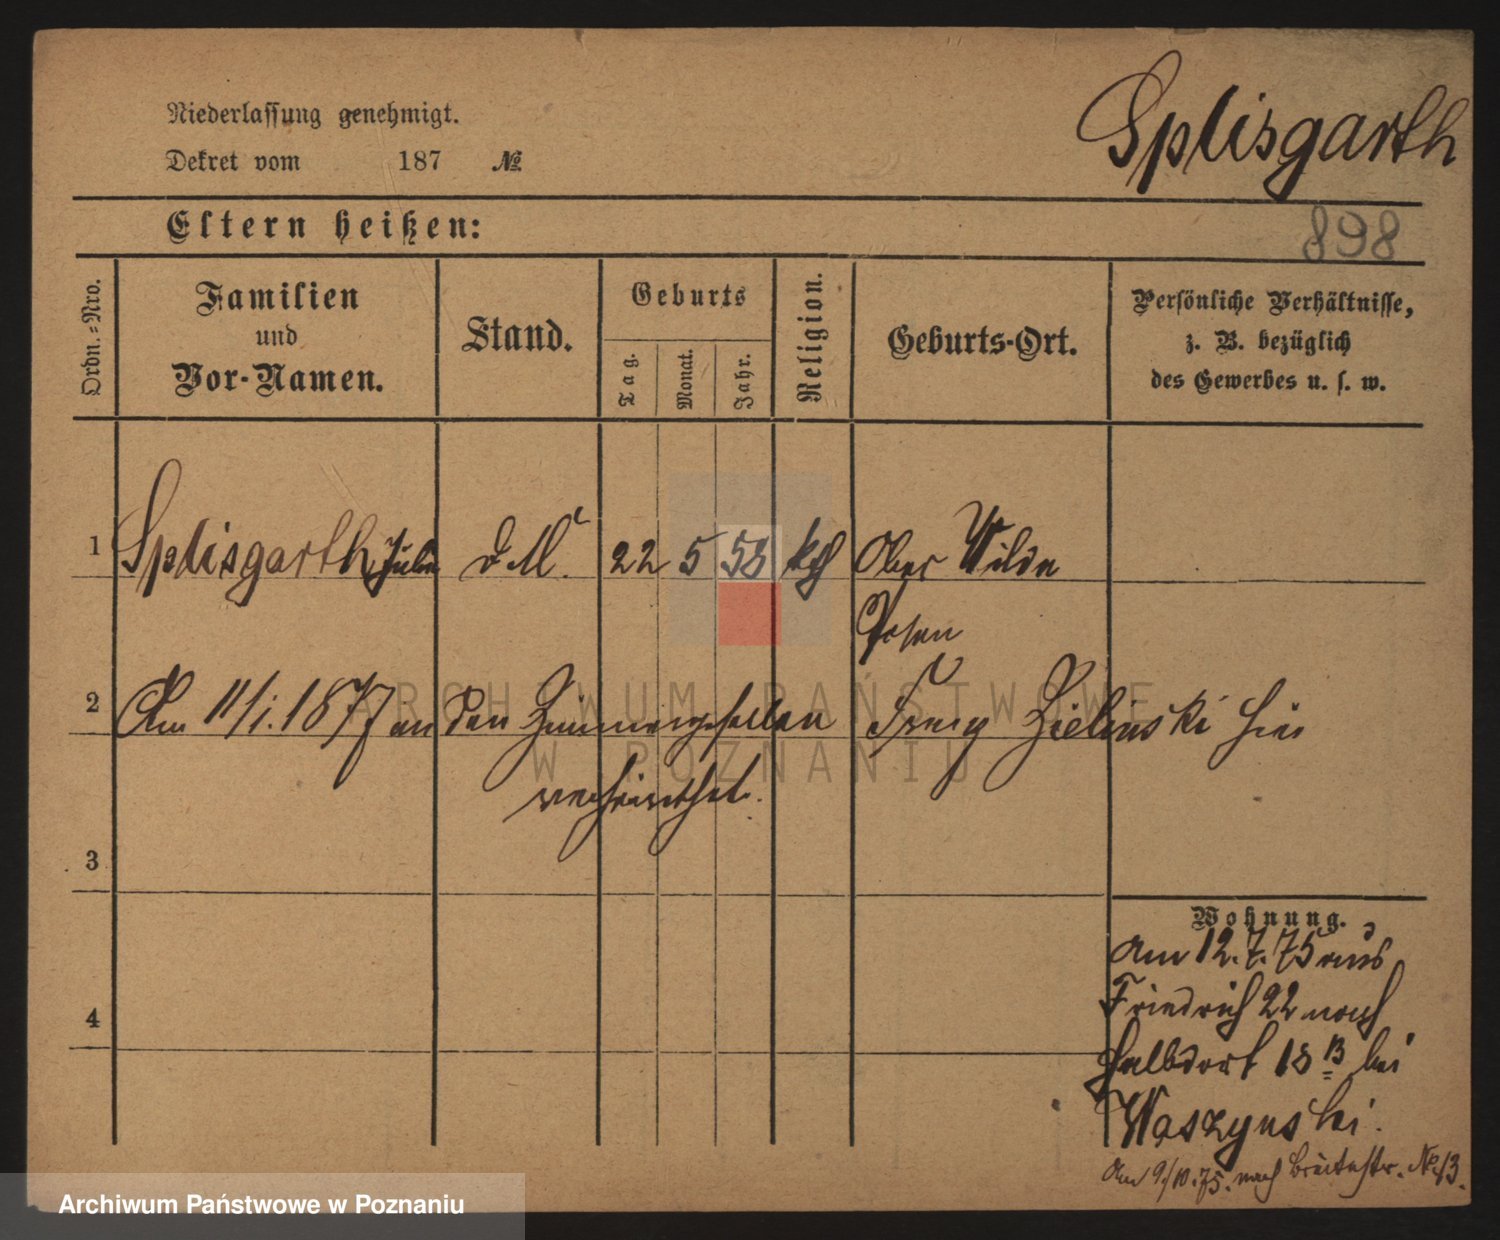 Splisgarth
Niederlassung genehmigt.
Dekret vom 187 №
898
Eltern heißen:
Ordn.-Nro.
Familien
und
Vor-Namen.
Stand.
Geburts
Tag.
Monat.
Jahr.
Religion.
Geburts-Ort.
Persönliche Verhältnisse,
z. B. bezüglich
des Gewerbes u. s. w.
1 Splisgarth, Julie d. M. 22 5 53 kth Ober Wilda
Posen
2 Am 11/1. 1877 an den Zimmergesellen Franz Zielinski hier
verheirathet.
3
4
Wohnung.
Am 12.7.75 aus
Friedrich 22 nach
Halbdorf 18 B bei
Waszynski.
Am 9/10.75. nach Breitestr. No 13.
ARCHIWUM PAŃSTWOWE
W POZNANIU
Archiwum Państwowe w Poznaniu